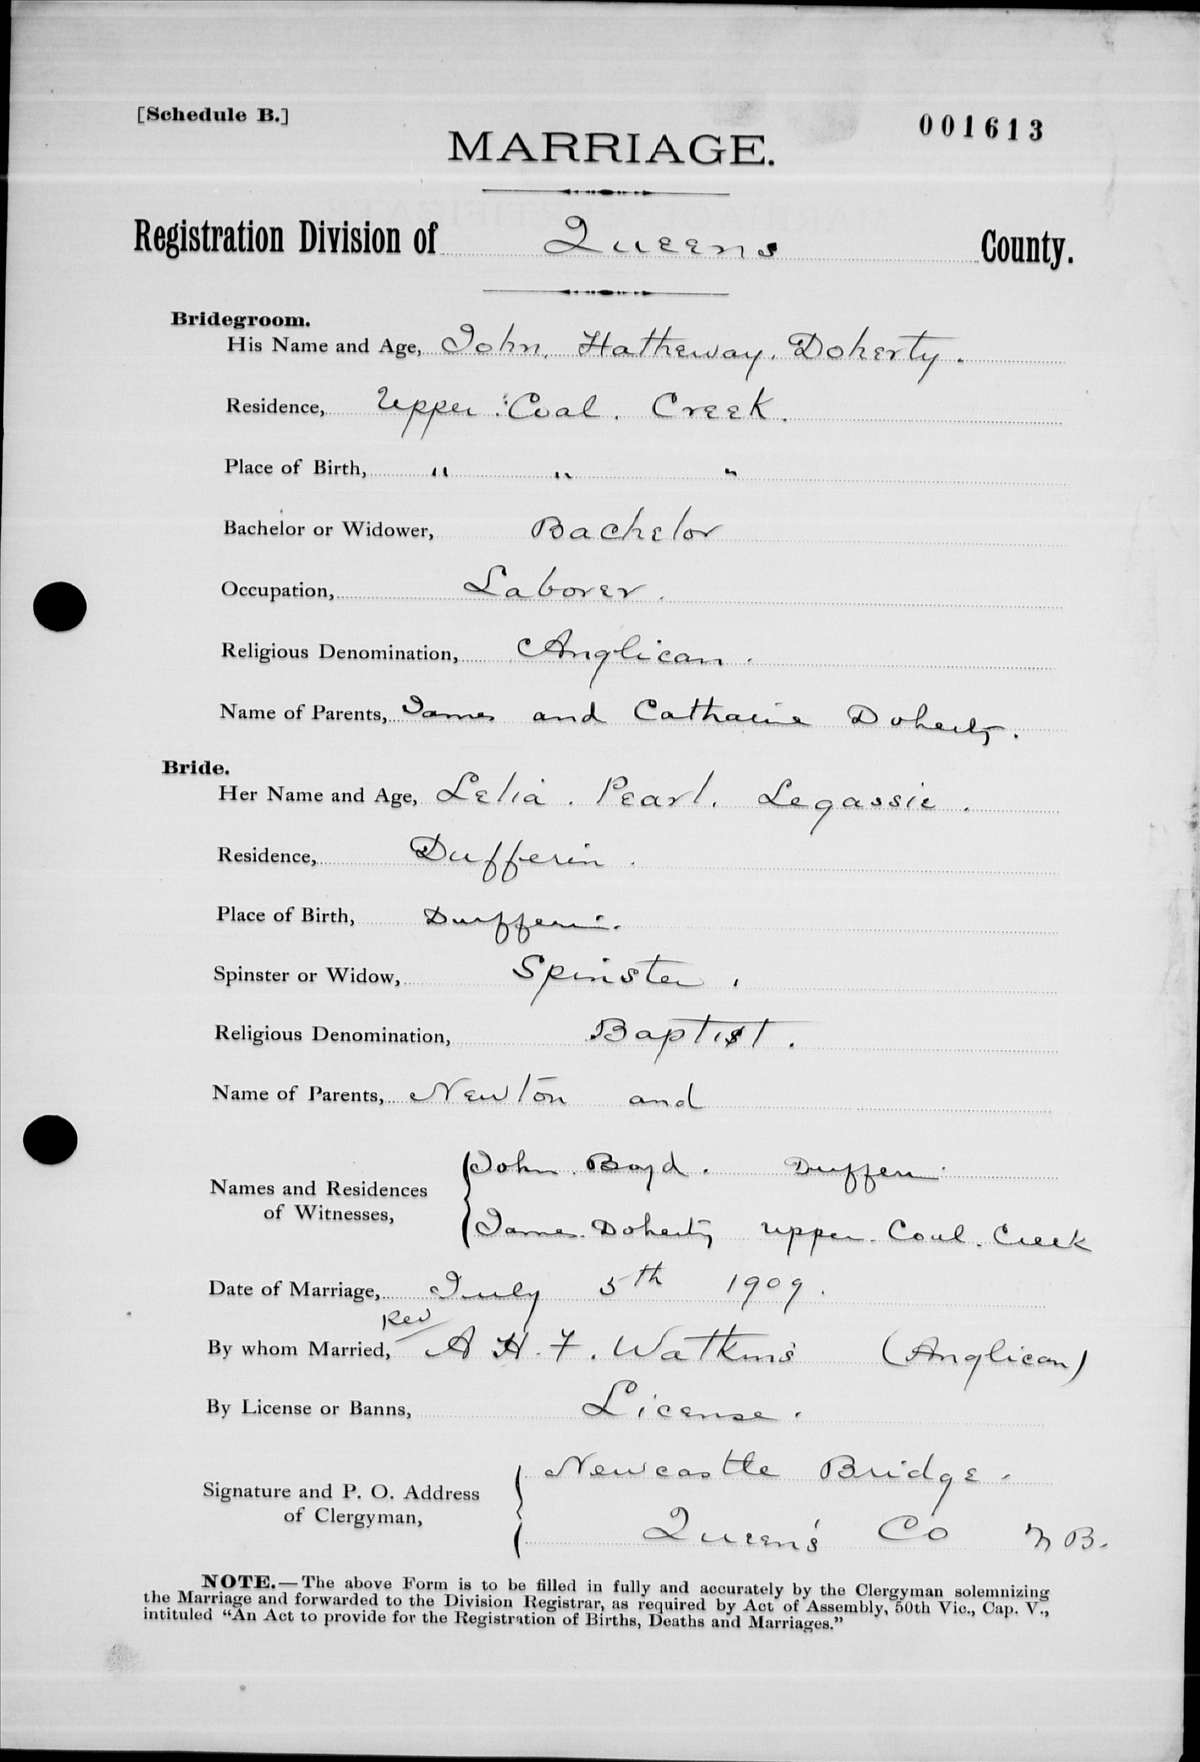 [Schedule B.]
001613
MARRIAGE.
Registration Division of Queens County.
Bridegroom.
His Name and Age, John Hatheway Doherty.
Residence, Upper Coal Creek.
Place of Birth, " " "
Bachelor or Widower, Bachelor
Occupation, Laborer.
Religious Denomination, Anglican.
Name of Parents, James and Catharine Doherty.
Bride.
Her Name and Age, Lelia Pearl Legassie.
Residence, Dufferin.
Place of Birth, Dufferin.
Spinster or Widow, Spinster.
Religious Denomination, Baptist.
Name of Parents, Newton and
John Boyd. Dufferin
Names and Residences
of Witnesses,
James Doherty Upper Coal Creek
Date of Marriage, July 5th 1909.
Rev
By whom Married, A H. F. Watkins (Anglican)
By License or Banns, License.
Newcastle Bridge.
Signature and P. O. Address
of Clergyman,
Queen's Co N B.
NOTE.—The above Form is to be filled in fully and accurately by the Clergyman solemnizing
the Marriage and forwarded to the Division Registrar, as required by Act of Assembly, 50th Vic., Cap. V.,
intituled "An Act to provide for the Registration of Births, Deaths and Marriages."